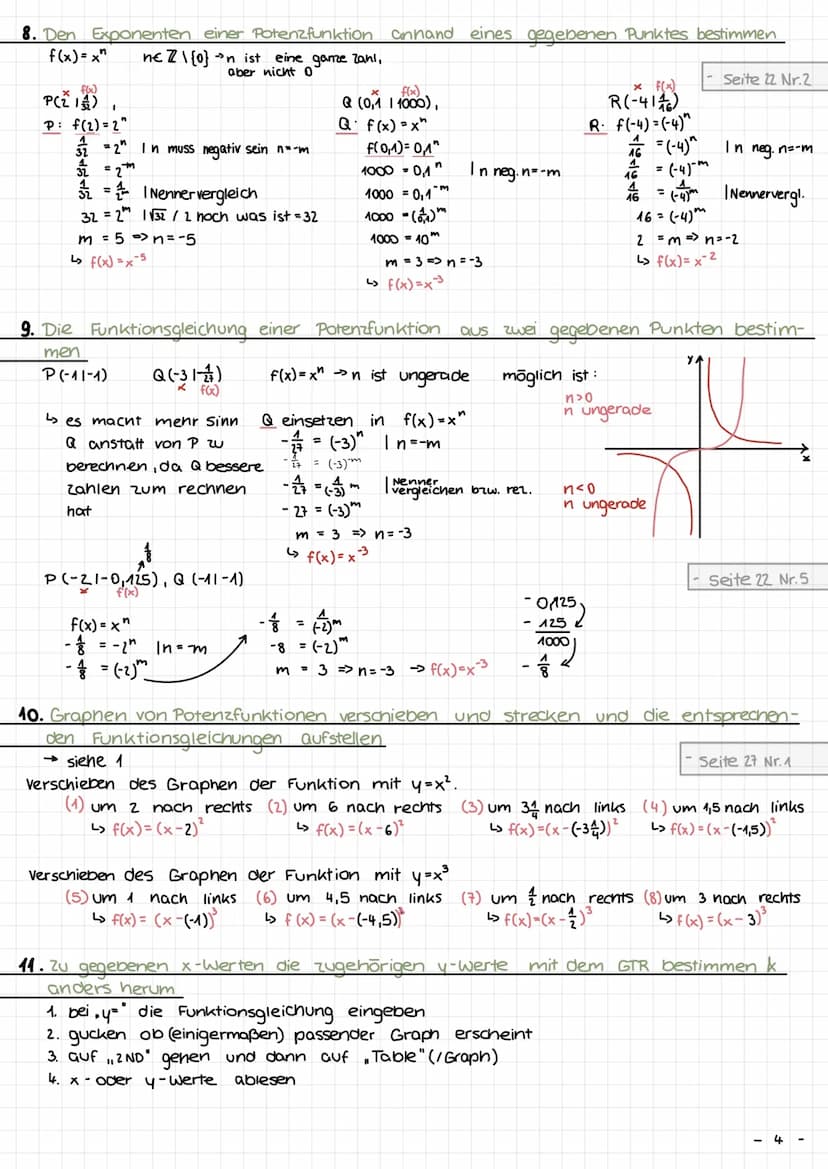 8. Den Exponenten einer Potenzfunktion anhand eines gegebenen Punktes bestimmen
f(x) = xⁿ n∈ℤ\{0} → n ist eine ganze Zahl,
aber nicht 0
- Seite 22 Nr.2
x f(x)
P(2 | 1/32) ,
P: f(2) = 2ⁿ
1/32 = 2ⁿ | n muss negativ sein n=-m
1/32 = 2⁻ᵐ
1/32 = 1/2ᵐ | Nennervergleich
32 = 2ᵐ | √32 / 2 hoch was ist = 32
m = 5 => n = -5
↳ f(x) = x⁻⁵
x f(x)
Q (0,1 | 1000),
Q: f(x) = xⁿ
f(0,1) = 0,1ⁿ
1000 = 0,1ⁿ | n neg. n=-m
1000 = 0,1⁻ᵐ
1000 = (1/0,1)ᵐ
1000 = 10ᵐ
m = 3 => n = -3
↳ f(x) = x⁻³
x f(x)
R(-4 | 1/16)
R: f(-4) = (-4)ⁿ
1/16 = (-4)ⁿ | n neg. n=-m
1/16 = (-4)⁻ᵐ
1/16 = 1/(-4)ᵐ | Nennervergl.
16 = (-4)ᵐ
2 = m => n = -2
↳ f(x) = x⁻²
9. Die Funktionsgleichung einer Potenzfunktion aus zwei gegebenen Punkten bestim-
men
P(-1|-1) Q(-3|-1/27) f(x) = xⁿ → n ist ungerade möglich ist:
x f(x)
n>0
n ungerade
n<0
n ungerade
y
x
↳ es macht mehr Sinn
Q anstatt von P zu
berechnen, da Q bessere
zahlen zum rechnen
hat
Q einsetzen in f(x) = xⁿ
-1/27 = (-3)ⁿ | n=-m
-1/27 = (-3)⁻ᵐ
-1/27 = 1/(-3)ᵐ | Nenner vergleichen bzw. rez.
-27 = (-3)ᵐ
m = 3 => n = -3
↳ f(x) = x⁻³
1/8
P(-2|-0,125), Q(-1|-1)
x f(x)
- Seite 22 Nr.5
f(x) = xⁿ
-1/8 = -2ⁿ | n = -m
-1/8 = (-2)ᵐ
-1/8 = 1/(-2)ᵐ
-8 = (-2)ᵐ
m = 3 => n = -3 → f(x) = x⁻³
- 0,125
- 125/1000
- 1/8
10. Graphen von Potenzfunktionen verschieben und strecken und die entsprechen-
den Funktionsgleichungen aufstellen
→ siehe 1
- Seite 27 Nr.1
Verschieben des Graphen der Funktion mit y=x².
(1) um 2 nach rechts (2) um 6 nach rechts (3) um 3 1/4 nach links (4) um 1,5 nach links
↳ f(x) = (x-2)² ↳ f(x) = (x-6)² ↳ f(x) = (x-(-3 1/4))² ↳ f(x) = (x-(-1,5))²
Verschieben des Graphen der Funktion mit y=x³
(5) um 1 nach links (6) um 4,5 nach links (7) um 1/2 nach rechts (8) um 3 nach rechts
↳ f(x) = (x-(-1))³ ↳ f(x) = (x-(-4,5))³ ↳ f(x) = (x-1/2)³ ↳ f(x) = (x-3)³
11. Zu gegebenen x-Werten die zugehörigen y-Werte mit dem GTR bestimmen &
anders herum
1. bei „y=" die Funktionsgleichung eingeben
2. gucken ob (einigermaßen) passender Graph erscheint
3. auf „2ND" gehen und dann auf „Table" (/Graph)
4. x- oder y-Werte ablesen
- 4 -